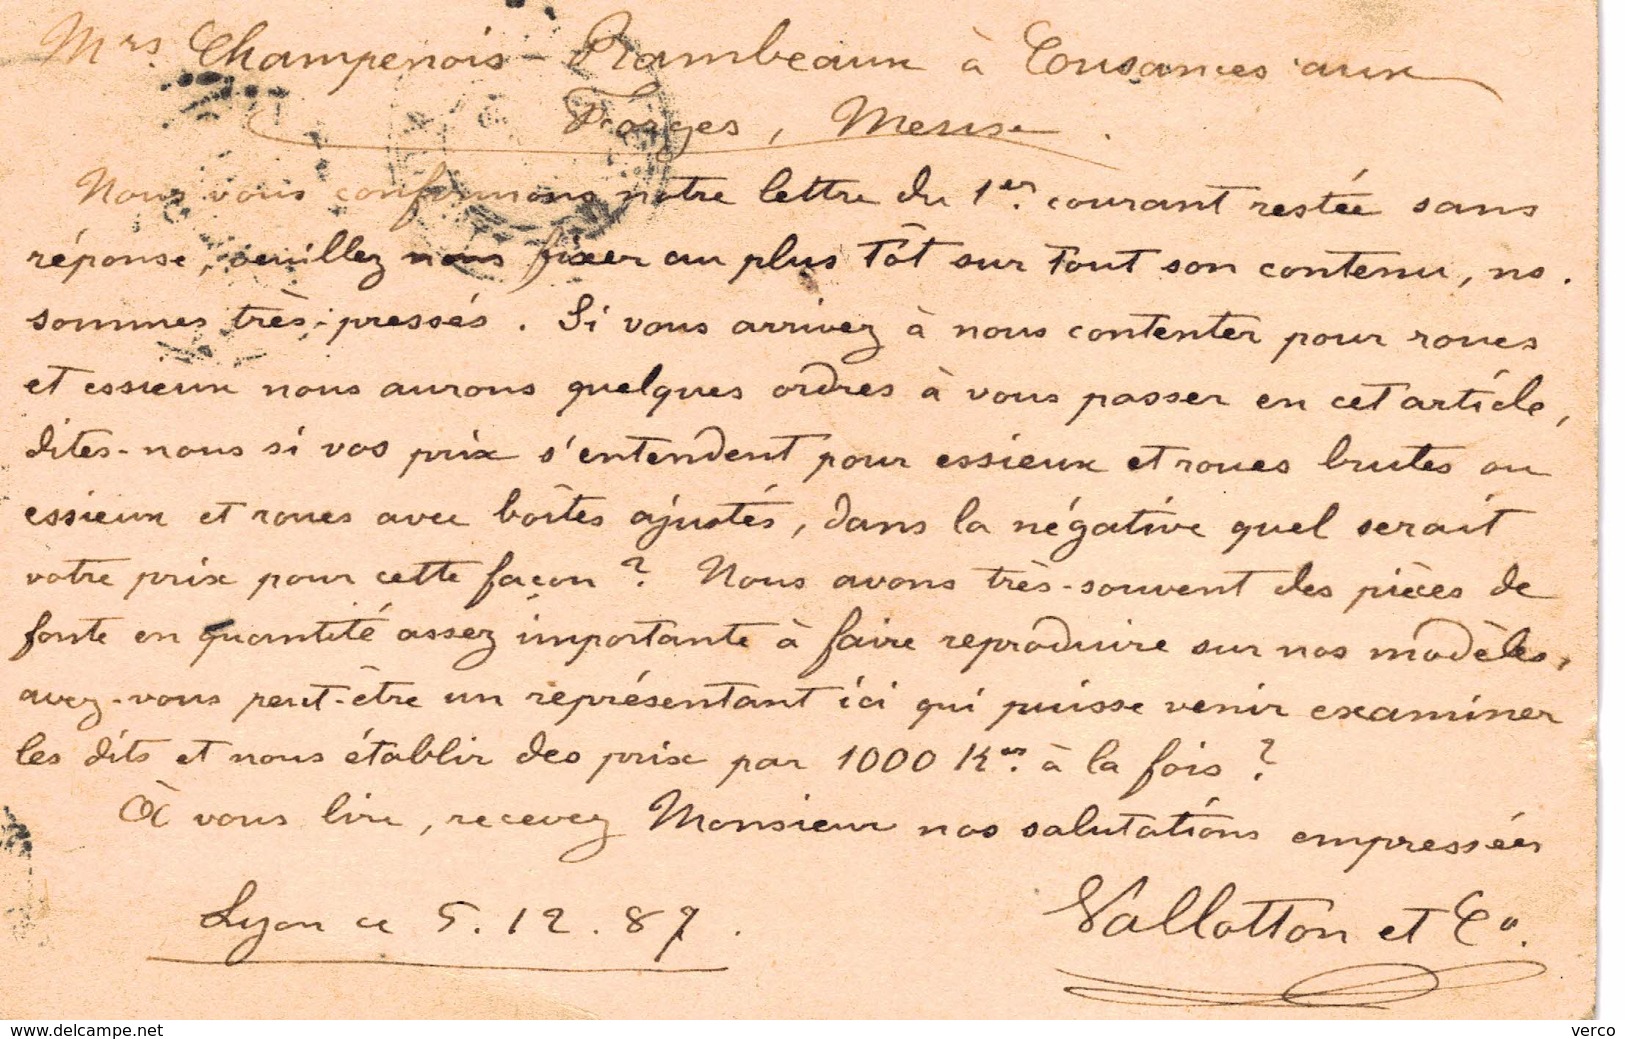 Mrs. Champenois-Rambeaux à Cousances aux
Forges, Meuse.
Nous vous confirmons notre lettre du 1er. courant restée sans
réponse, veuillez nous fixer au plus tôt sur tout son contenu, ns.
sommes très-pressés. Si vous arrivez à nous contenter pour roues
et essieux nous aurons quelques ordres à vous passer en cet article,
dites-nous si vos prix s'entendent pour essieux et roues brutes ou
essieux et roues avec boîtes ajustés, dans la négative quel serait
votre prix pour cette façon ? Nous avons très-souvent des pièces de
fonte en quantité assez importante à faire reproduire sur nos modèles,
avez-vous peut-être un représentant ici qui puisse venir examiner
les dits et nous établir des prix par 1000 Kos. à la fois ?
À vous lire, recevez Monsieur nos salutations empressées
Lyon ce 5.12.87.
Vallotton et Co.
www.delcampe.net
verco